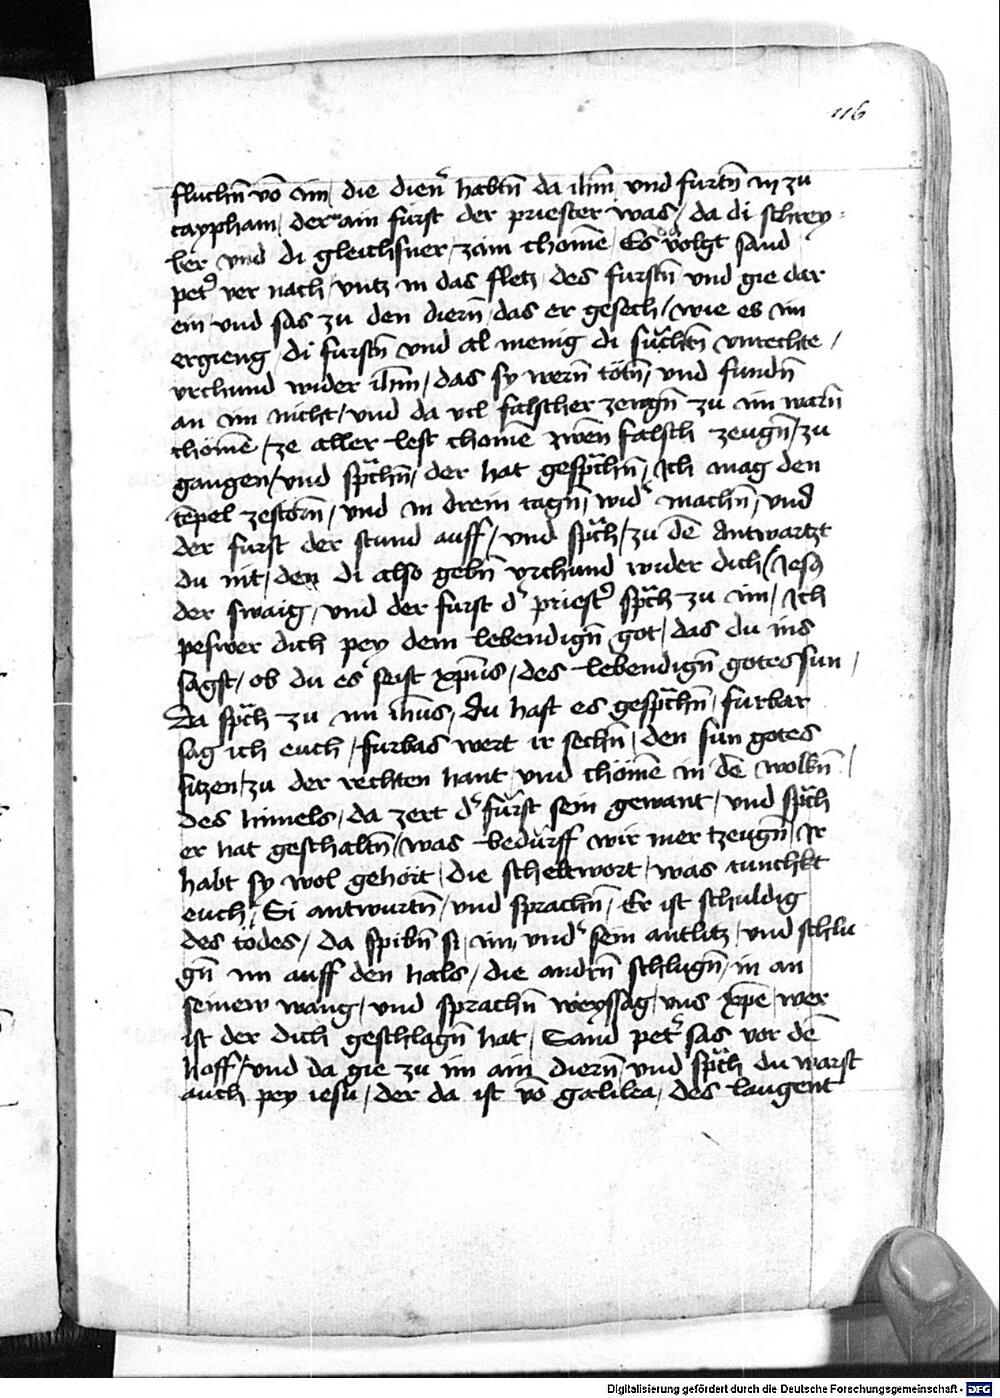 116
fluchn̄ vō im / die dien̄ habtn̄ da ih̄m vnd furtn̄ in zu
caypham / der ain fürst der priester was / da di schrey-
ber vnd di gleichsner zam chomē / Es volgt sand
pet᷒ ver nach / vntz in das fletz des furstn̄ vnd gie dar
ein vnd sas zu den diern̄ / das er gesech / wie es im
ergieng / di furstn̄ vnd al menig di suͤchtn̄ vnrechte /
vrchund wider ih̄m / das sy wern̄ tötn̄ / vnd fundn̄
an im nicht / vnd da vil falscher zeugn̄ zu im warn̄
chömē / ze aller lest chomē zwen falsch zeugn̄ / zu
gangen / vnd sp̄chn̄ / der hat gesp̄chn̄ / Ich mag den
tēpel zestörn̄ / vnd in drein tagn̄ / wid᷑ machn̄ / vnd
der furst der stund auff / vnd sp̄ch / zu dē Antwartzt
du nit / den di also gebn̄ vrchund wider dich / Jesꝯ
der swaig / vnd der furst d᷑ priest᷑ sp̄ch zu im / Ich
peswer dich pey dem lebendign̄ got / das du uns
sagst / ob du es seist xp̄us / des lebendign̄ gotes sun /
Da sp̄ch zu im ih̄us / du hast es gesp̄chn̄ / furbar
sag ich euch / furbas wert ir sechn̄ / den sun gotes
sitzen / zu der rechten hant / vnd chömē in dē wolkn̄ /
des himels / da zert d᷑ fürst sein gewant / vnd sp̄ch
er hat gescholtn̄ / was bedürff wir mer tzeugn̄ / Ir
habt sy wol gehört / die scheltwort / was tunchkt
euch / Si antwurtn̄ / vnd sprachn̄ / Er ist schuldig
des tödes / da spibn̄ si / im / vnd᷑ sein antlitz / vnd schlu
gn̄ im auff den hals / die andrn̄ schlugn̄ / in an
seinew wang / vnd sprachn̄ weyssag / vns xp̄e / wer
ist der dich geschlagn̄ hat / Sand pet᷑ sas vor dē
hoff / vnd da gie zu im ain diern̄ / vnd sp̄ch du warst
auch pey iesu / der da ist vō galilea / des laugent
Digitalisierung gefördert durch die Deutsche Forschungsgemeinschaft - DFG